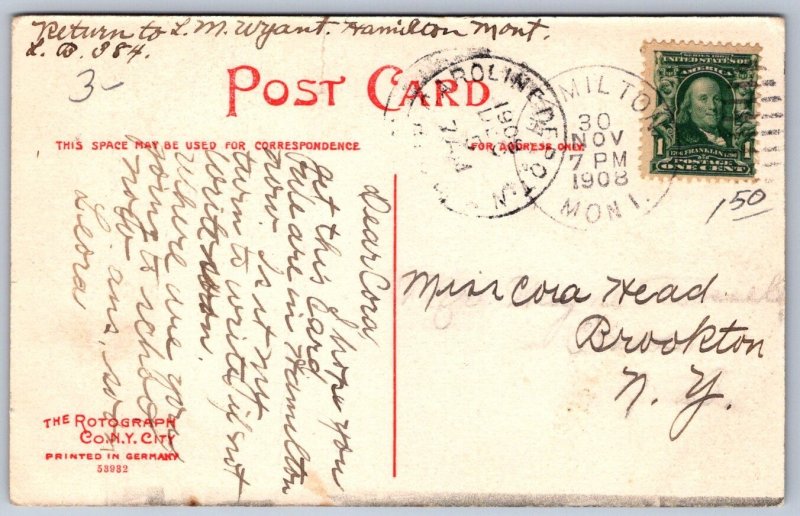 Return to L. M. Wyant. Hamilton Mont.
L. B. 384.
3-
POST CARD
THIS SPACE MAY BE USED FOR CORRESPONDENCE
FOR ADDRESS ONLY
CAROLINE DEPOT
DEC
1908
7 AM
N.Y.
HAMILTON
30
NOV
7 PM
1908
MONT.
SERIES 1902
UNITED STATES OF
AMERICA
FRANKLIN
1 1
POSTAGE
ONE CENT
1 50
Dear Cora,
I hope you
get this Card
we are in Hamilton
now. Is it my
turn to write if not
write soon.
Where are you
going to school
now. ans. soon
Leora
Miss Cora Head
Brookton
N. Y.
THE ROTOGRAPH
CO. N.Y. CITY
PRINTED IN GERMANY
53932